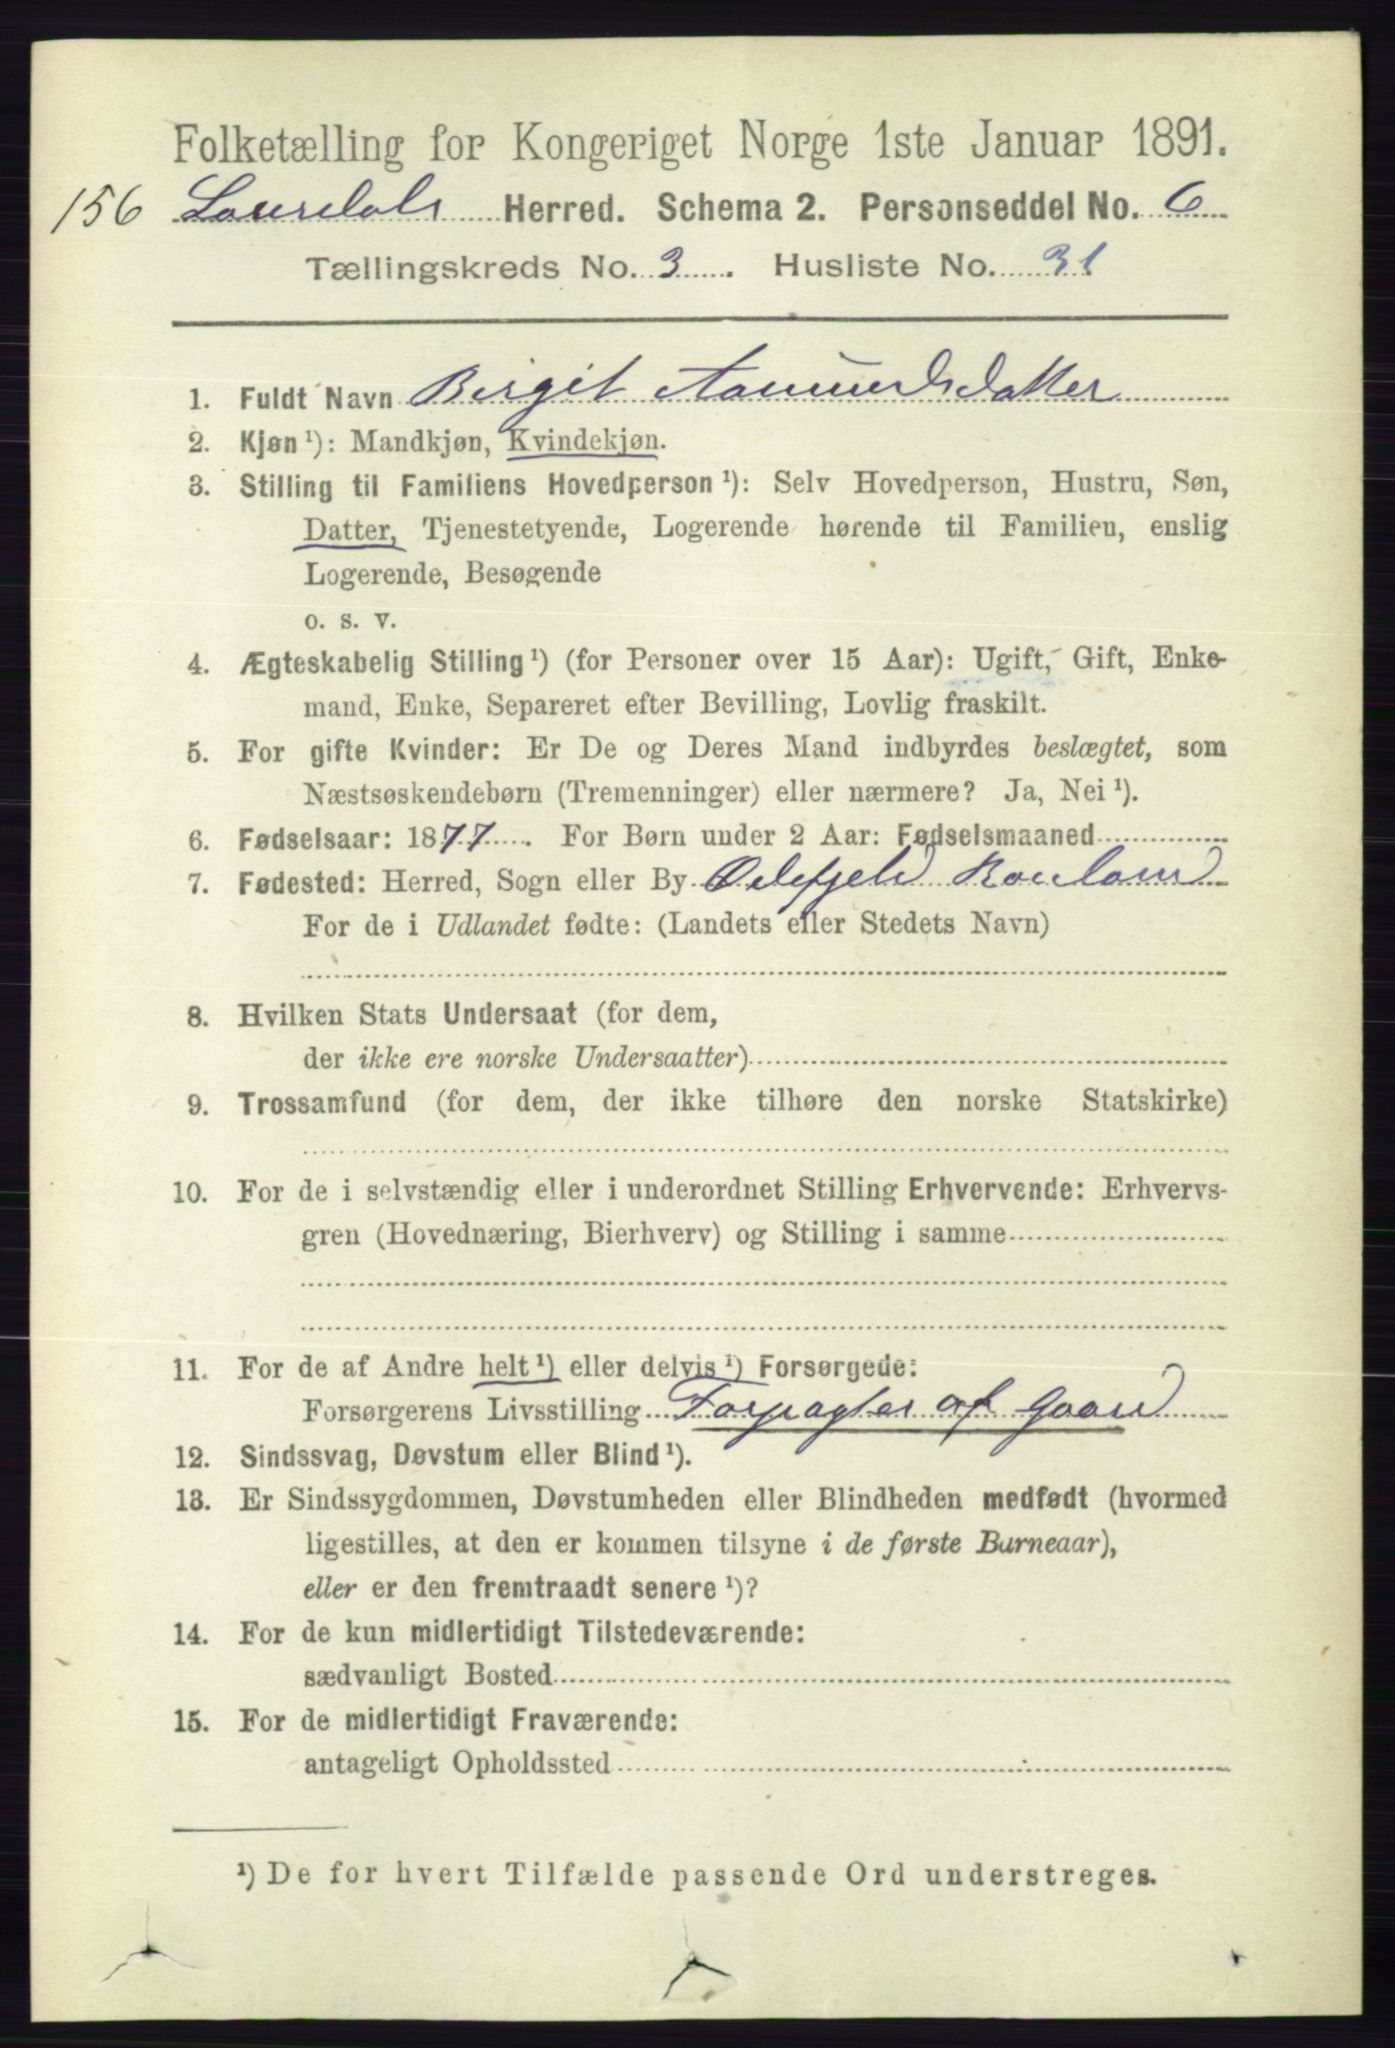 Folketælling for Kongeriget Norge 1ste Januar 1891.
156 Laurdals Herred. Schema 2. Personseddel No. 6
Tællingskreds No. 3. Husliste No. 31
1. Fuldt Navn Birgit Aamundsdatter
2. Kjøn ¹): Mandkjøn, Kvindekjøn.
3. Stilling til Familiens Hovedperson ¹): Selv Hovedperson, Hustru, Søn,
Datter, Tjenestetyende, Logerende hørende til Familien, enslig
Logerende, Besøgende
o. s. v.
4. Ægteskabelig Stilling ¹) (for Personer over 15 Aar): Ugift, Gift, Enke-
mand, Enke, Separeret efter Bevilling, Lovlig fraskilt.
5. For gifte Kvinder: Er De og Deres Mand indbyrdes beslægtet, som
Næstsøskendebørn (Tremenninger) eller nærmere? Ja, Nei ¹).
6. Fødselsaar: 1877. For Børn under 2 Aar: Fødselsmaaned
7. Fødested: Herred, Sogn eller By Rauland
For de i Udlandet fødte: (Landets eller Stedets Navn)
8. Hvilken Stats Undersaat (for dem,
der ikke ere norske Undersaatter)
9. Trossamfund (for dem, der ikke tilhøre den norske Statskirke)
10. For de i selvstændig eller i underordnet Stilling Erhvervende: Erhvervs-
gren (Hovednæring, Bierhverv) og Stilling i samme
11. For de af Andre helt ¹) eller delvis ¹) Forsørgede:
Forsørgerens Livsstilling Forpagter af Gaard
12. Sindssvag, Døvstum eller Blind ¹).
13. Er Sindssygdommen, Døvstumheden eller Blindheden medfødt (hvormed
ligestilles, at den er kommen tilsyne i de første Barneaar),
eller er den fremtraadt senere ¹)?
14. For de kun midlertidigt Tilstedeværende:
sædvanligt Bosted
15. For de midlertidigt Fraværende:
antageligt Opholdssted
¹) De for hvert Tilfælde passende Ord understreges.